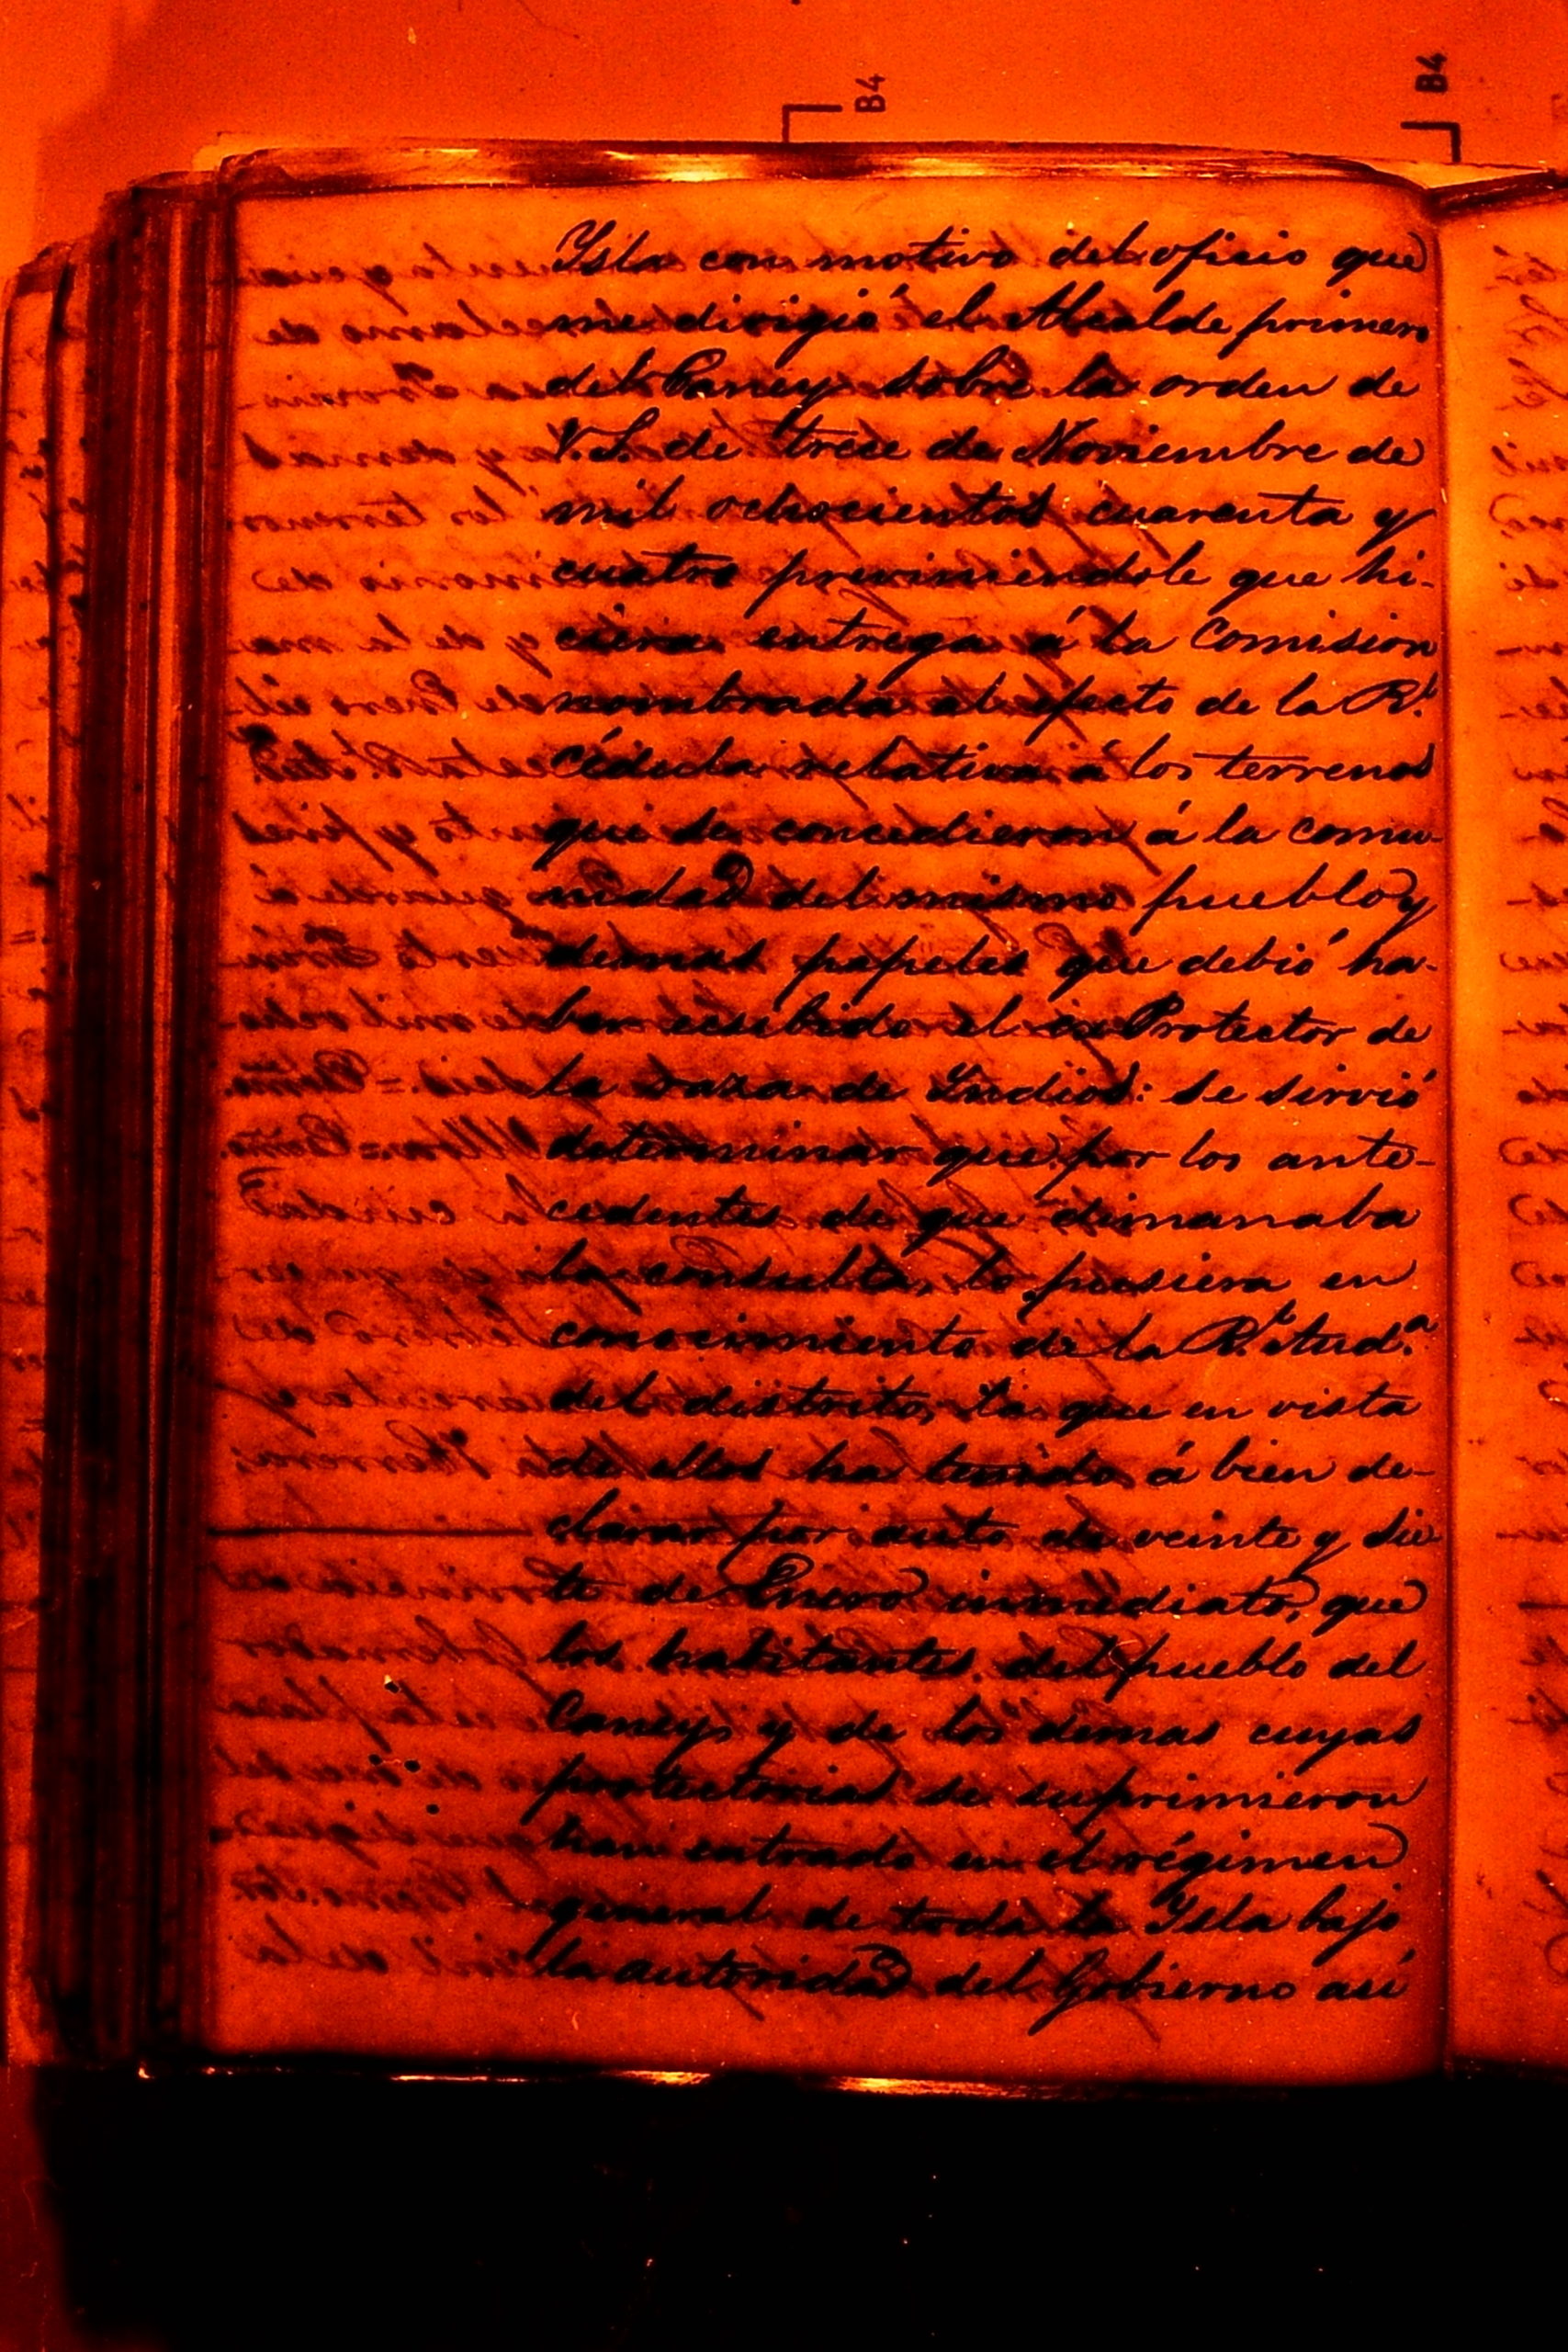 B4
B4
Ysla con motivo del oficio que
me dirigió el Alcalde primero
del Caney sobre la orden de
V.S. de trece de Noviembre de
mil ochocientos cuarenta y
cuatro previniendole que hi-
ciera entrega á la Comision
nombrada al efecto de la Rl.
Cédula relativa á los terrenos
que se concedieron á la comu-
nidad del mismo pueblo y
demas papeles que debió ha-
ber recibido el ex Protector de
la raza de Yndios: se sirvió
determinar que por los ante-
cedentes de que dimanaba
la consulta, lo pusiera en
conocimiento de la Rl. Auda.
del distrito, la que en vista
de ellos ha tenido á bien de-
clarar por auto de veinte y sie
te de Enero inmediato, que
los habitantes del pueblo del
Caney, y de los demas cuyas
protectorias se suprimieron
han entrado en el régimen
general de toda la Ysla bajo
la autoridad del Gobierno así